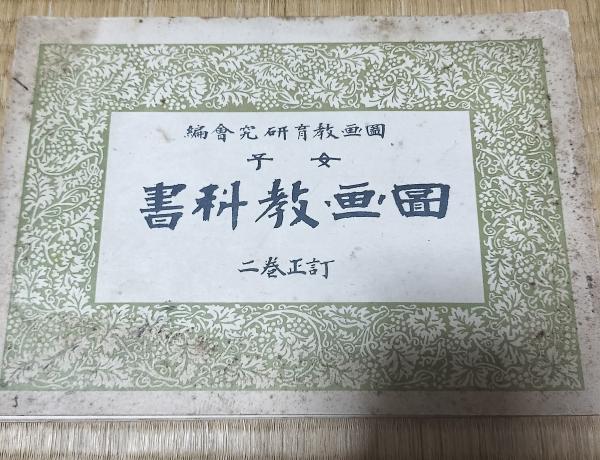 圖画教育研究會編
女子
圖画教科書
訂正巻二